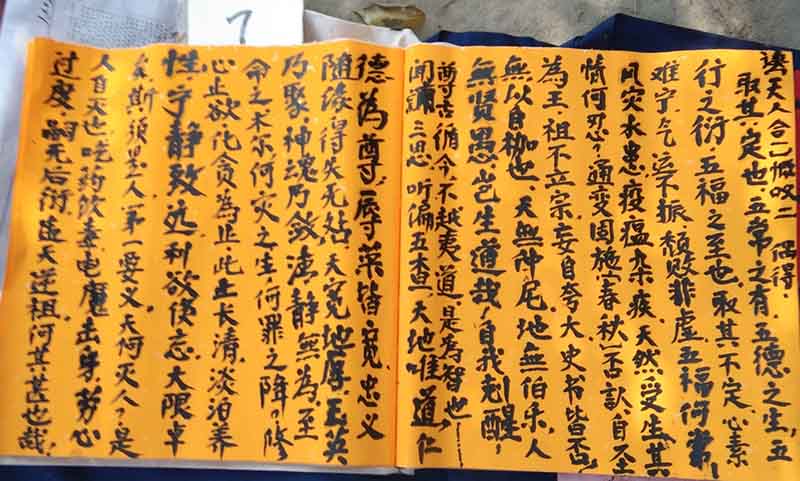 7
读天人合已慨叹二 偶得.
取其.定也.五常之有.五德之生.五
行之衍.五福之至也.取其.不定.心素
难宁.气运不振.颓败非虚.五福何常.
风灾水患.疫瘟杂疾.天然受生.其
情何忍?通变周施.春秋一否.訞.自圣
為王.祖不立宗.妄自夸大.史书皆否.
無以自枷也.天無仲尼.地無伯乐.人
無贤愚.岂生道哉!自我克醒.醒
尊古循今.不越夷道.是為智也.
闻诵三思.听偏五查.天地唯道.仁
德為尊.辱荣皆宽.忠义
随缘.得失无站.天宽地厚.玉英
乃聚.神魂乃敛.清静無為.至
命之本.尔何灾之生.何罪之降?修
心止欲.化貪為止.此止长清.淡泊养
性.宁静致远.利欲使忘.大限卓
矣.斯须.圣人第一要义.天何灭人?是
人自灭也.吃药饮毒.电魔击身.劳心
过度.嗣无后衍.违天逆祖.何其甚也哉.